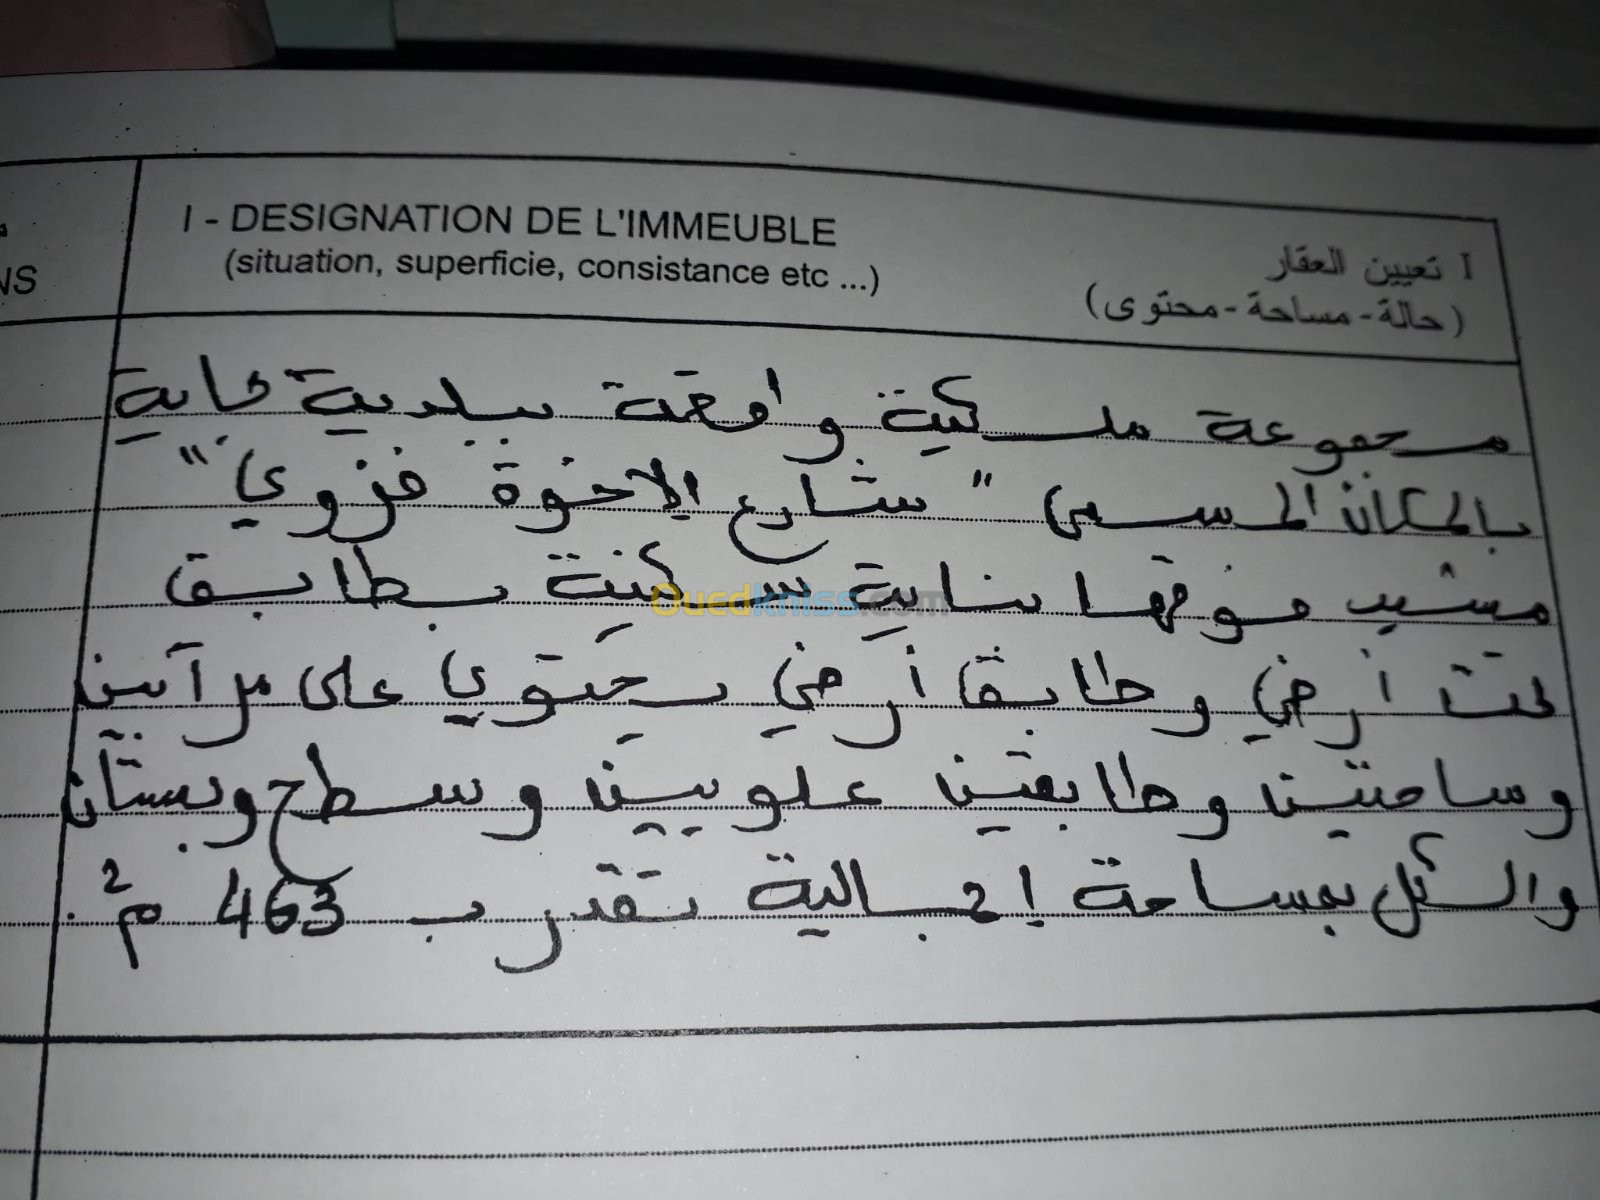 NS
I - DESIGNATION DE L'IMMEUBLE
(situation, superficie, consistance etc ...)
I تعيين العقار
(حالة-مساحة-محتوى)
مجموعة ملكية واقعة ببلدية بجاية
بالمكان المسمى " شارع الإخوة فزوي "
مشيد فوقها بناية سكنية بطابق
تحت أرضي وطابق أرضي يحتوي على مرآبين
وساحتين وطابقين علويين وسطح وبستان
والكل بمساحة إجمالية تقدر ب 463 م².
Ouedkniss.com